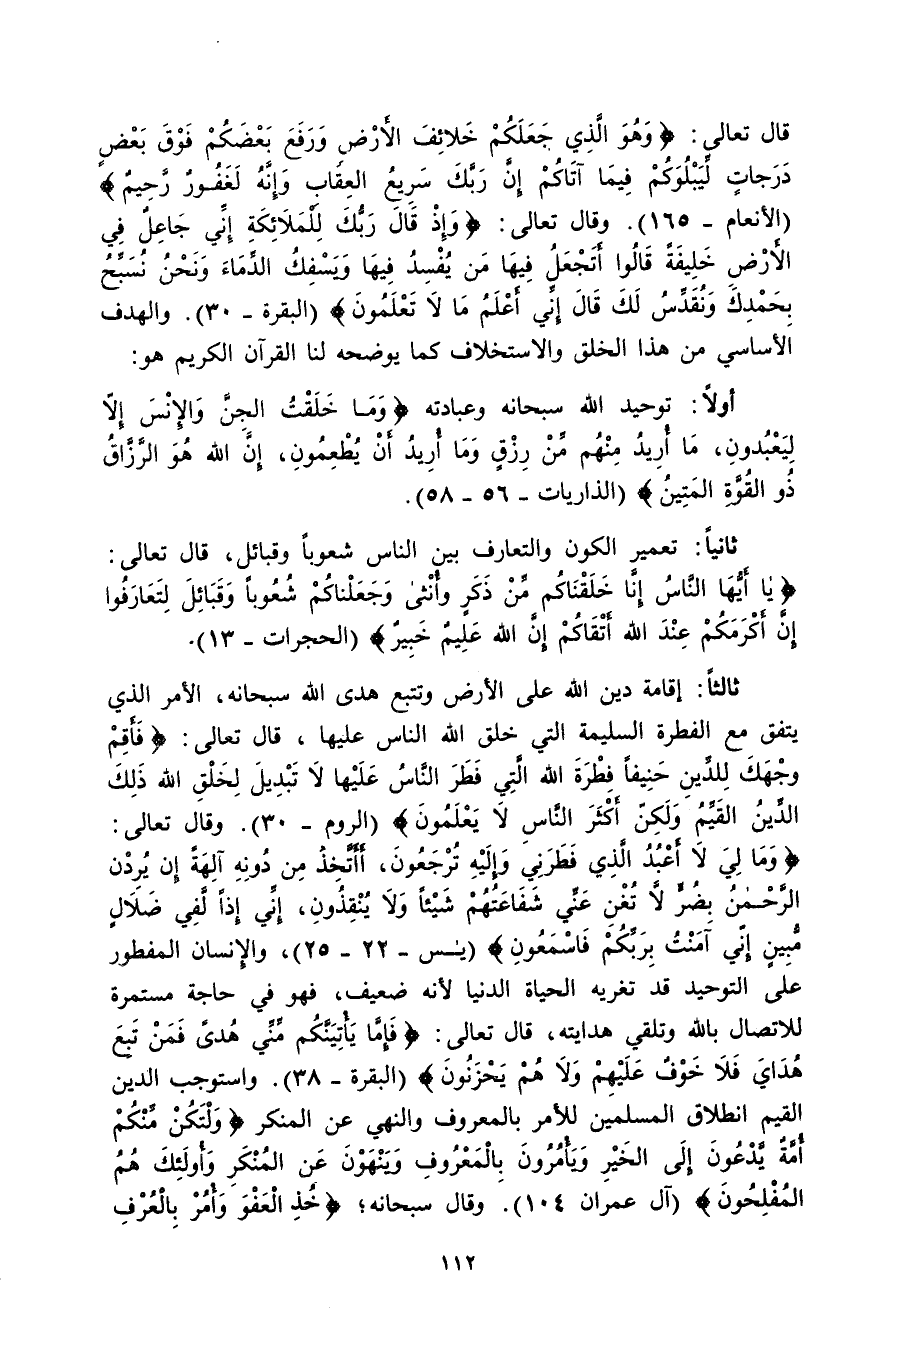 قال تعالى: ﴿ وَهُوَ الَّذِي جَعَلَكُمْ خَلائِفَ الأَرْضِ وَرَفَعَ بَعْضَكُمْ فَوْقَ بَعْضٍ
دَرَجاتٍ لِّيَبْلُوَكُمْ فِيمَا آتَاكُمْ إِنَّ رَبَّكَ سَرِيعُ العِقَابِ وَإِنَّهُ لَغَفُورٌ رَّحِيمٌ ﴾
(الأنعام - ١٦٥). وقال تعالى: ﴿ وَإِذْ قَالَ رَبُّكَ لِلْمَلَائِكَةِ إِنِّي جَاعِلٌ فِي
الأَرْضِ خَلِيفَةً قَالُوا أَتَجْعَلُ فِيهَا مَن يُفْسِدُ فِيهَا وَيَسْفِكُ الدِّمَاءَ وَنَحْنُ نُسَبِّحُ
بِحَمْدِكَ وَنُقَدِّسُ لَكَ قَالَ إِنِّي أَعْلَمُ مَا لَا تَعْلَمُونَ ﴾ (البقرة - ٣٠). والهدف
الأساسي من هذا الخلق والاستخلاف كما يوضحه لنا القرآن الكريم هو:
أولاً: توحيد الله سبحانه وعبادته ﴿ وَمَا خَلَقْتُ الجِنَّ وَالإِنْسَ إِلاَّ
لِيَعْبُدونِ، مَا أُرِيدُ مِنْهُم مِّنْ رِزْقٍ وَمَا أُرِيدُ أَنْ يُطْعِمُونِ، إِنَّ الله هُوَ الرَّزَّاقُ
ذُو القُوَّةِ المَتِينُ ﴾ (الذاريات - ٥٦ - ٥٨).
ثانياً: تعمير الكون والتعارف بين الناس شعوباً وقبائل، قال تعالى:
﴿ يٰا أَيُّهَا النَّاسُ إِنَّا خَلَقْنَاكُم مِّنْ ذَكَرٍ وأُنْثىٰ وَجَعَلْناكُمْ شُعُوباً وَقَبَائِلَ لِتَعَارَفُوا
إِنَّ أَكْرَمَكُمْ عِنْدَ الله أَتْقَاكُمْ إِنَّ الله عَلِيمٌ خَبِيرٌ ﴾ (الحجرات - ١٣).
ثالثاً: إقامة دين الله على الأرض وتتبع هدى الله سبحانه، الأمر الذي
يتفق مع الفطرة السليمة التي خلق الله الناس عليها ، قال تعالى: ﴿ فَأَقِمْ
وجْهَكَ لِلدِّينِ حَنِيفاً فِطْرَةَ الله الَّتِي فَطَرَ النَّاسُ عَلَيْها لَا تَبْدِيلَ لِخَلْقِ الله ذَلِكَ
الدِّينُ القَيِّمُ وَلَكِنّ أَكْثَرَ النَّاسِ لَا يَعْلَمُونَ ﴾ (الروم - ٣٠). وقال تعالى:
﴿ وَمَا لِيَ لَا أَعْبُدُ الَّذِي فَطَرَنِي وَإِلَيْهِ تُرْجَعُونَ، أَأَتَّخِذُ مِن دُونِهِ آلِهَةً إِن يُرِدْن
الرَّحْمٰنُ بِضُرٍّ لَّا تُغْنِ عَنِّي شَفَاعَتُهُمْ شَيْئاً وَلَا يُنْقِذُونِ، إِنِّي إِذاً لَّفِي ضَلَالٍ
مُّبِينٍ إِنِّي آمَنْتُ بِرَبِّكُمْ فَاسْمَعُونِ ﴾ (يٰس - ٢٢ - ٢٥)، والإنسان المفطور
على التوحيد قد تغريه الحياة الدنيا لأنه ضعيف، فهو في حاجة مستمرة
للاتصال بالله وتلقي هدايته، قال تعالى: ﴿ فَإِمَّا يَأْتِيَنَّكُم مِّنِّي هُدىً فَمَنْ تَبِعَ
هُدَايَ فَلَا خَوْفٌ عَلَيْهِمْ وَلَا هُمْ يَحْزَنُونَ ﴾ (البقرة - ٣٨). واستوجب الدين
القيم انطلاق المسلمين للأمر بالمعروف والنهي عن المنكر ﴿ وَلْتَكُنْ مِّنْكُمْ
أُمَّةٌ يَّدْعُونَ إِلَى الخَيْرِ وَيَأْمُرُونَ بِالْمَعْرُوفِ وَيَنْهَوْنَ عَنِ المُنْكَرِ وَأُولَئِكَ هُمُ
المُفْلِحُونَ ﴾ (آل عمران ١٠٤). وقال سبحانه؛ ﴿ خُذِ الْعَفْوَ وَأْمُرْ بِالْعُرْفِ
١١٢